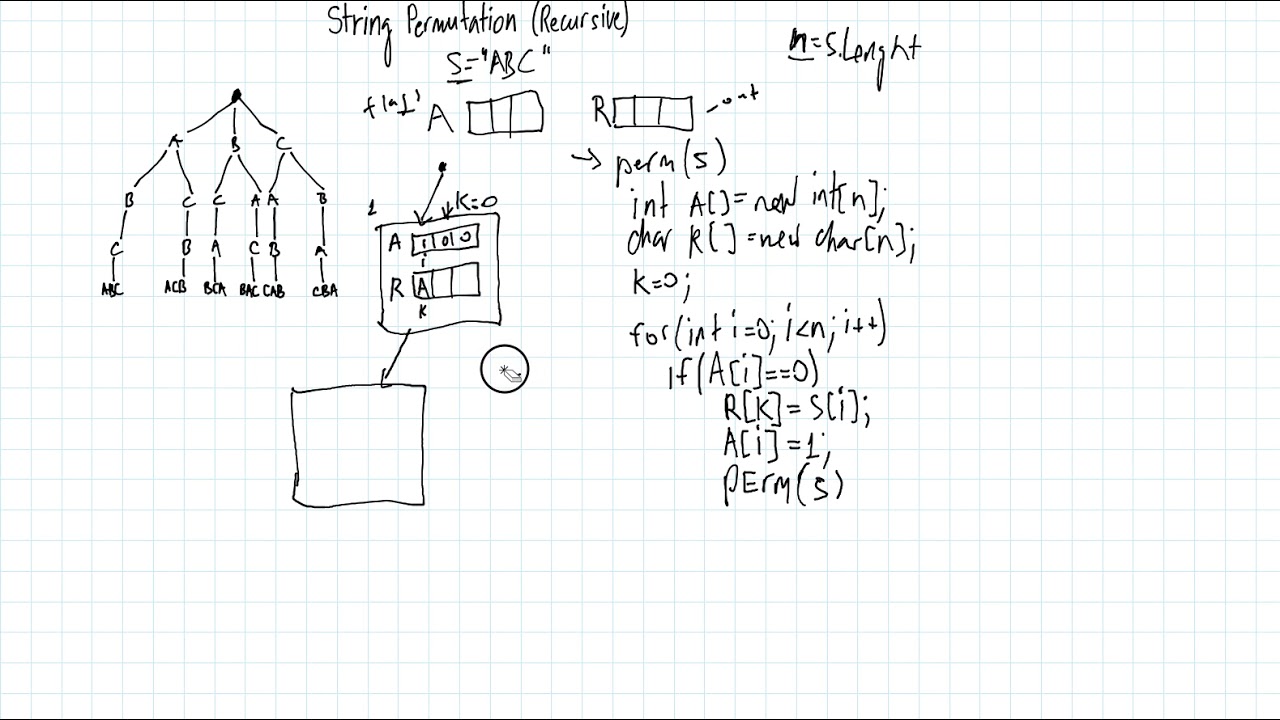 String Permutation (Recursive)
S="ABC"
n=S.Lenght
A
R
out
A B C
B C C A A B
C B A C B A
ABC ACB BCA BAC CAB CBA
1
K=0
A 1 0 0
i
R A
K
perm(S)
int A[]=new int[n];
char R[]=new char[n];
K=0;
for(int i=0; i<n; i++)
if(A[i]==0)
R[K]=S[i];
A[i]=1;
PErm(S)